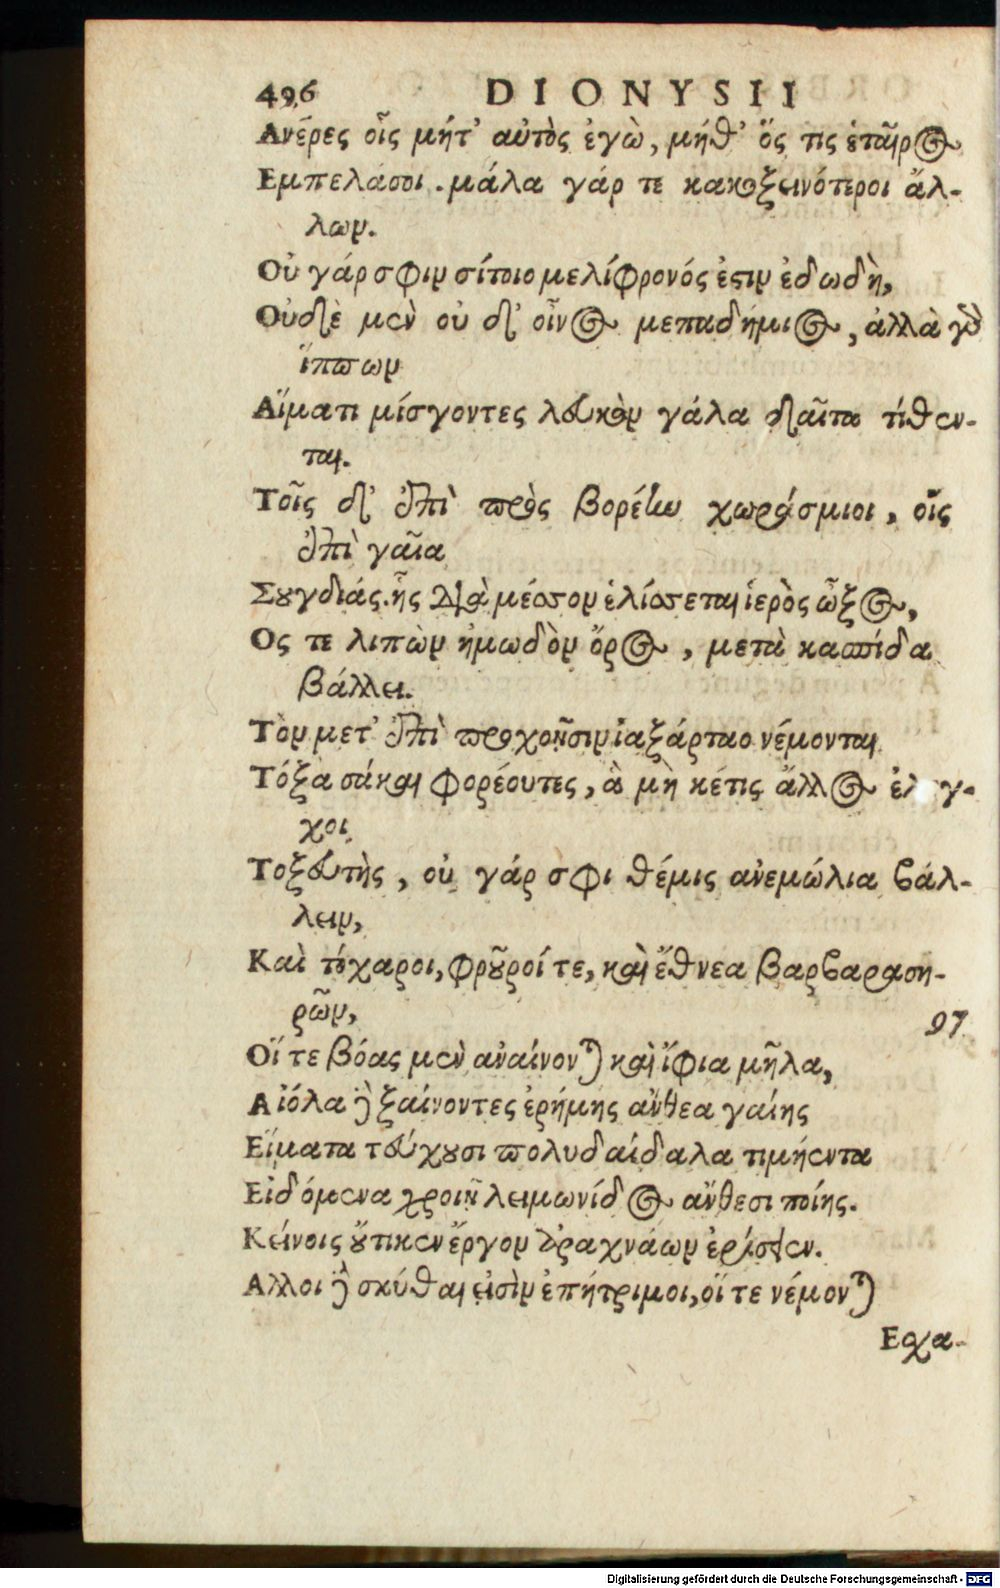 496 DIONYSII
Ανέρες οἷς μήτ' αὐτὸς ἐγὼ, μήθ' ὅς τις ἑταῖρος
Εμπελάσοι. μάλα γάρ τε κακοξεινότεροι ἄλ-
λων.
Οὐ γάρ σφιν σίτοιο μελίφρονός ἐστιν ἐδωδὴ,
Οὐδὲ μὲν οὐ δ' οἶνος μεταδήμιος, ἀλλὰ γὸ
ἵππων
Αἵματι μίσγοντες λευκὸν γάλα δαῖτα τίθεν-
ται.
Τοῖς δ' ἐπὶ πρὸς βορέην χωράσμιοι, οἷς
ἐπὶ γαῖα
Σουγδιάς. ἧς διὰ μέσσον ἑλίσσεται ἱερὸς ὦξος,
Ος τε λιπὼν ἠμωδὸν ὄρος, μετὰ κασπίδα
βάλλει.
Τὸν μετ' ἐπὶ προχοῇσιν ἰαξάρταο νέμονται
Τόξα σάκαι φορέουτες, ἃ μὴ κέτις ἄλλος ἐλεγ-
χοι
Τοξευτὴς, οὐ γάρ σφι θέμις ἀνεμώλια βάλ-
λειν,
Καὶ τόχαροι, φροῦροί τε, καὶ ἔθνεα βαρβαραση-
ρῶν,
97
Οἵ τε βόας μὲν ἀναίνονται καὶ ἴφια μῆλα,
Αἰόλα δὲ ξαίνοντες ἐρήμης ἄνθεα γαίης
Εἵματα τεύχουσι πολυδαίδαλα τιμήεντα
Εἰδόμενα χροιῇ λειμωνίδος ἄνθεσι ποίης.
Κείνοις οὔτικεν ἔργον ἀραχνάων ἐρίσειεν.
Αλλοι δὲ σκύθαι εἰσὶν ἐπήτριμοι, οἵ τε νέμονται
Εσχα-
Digitalisierung gefördert durch die Deutsche Forschungsgemeinschaft - DFG